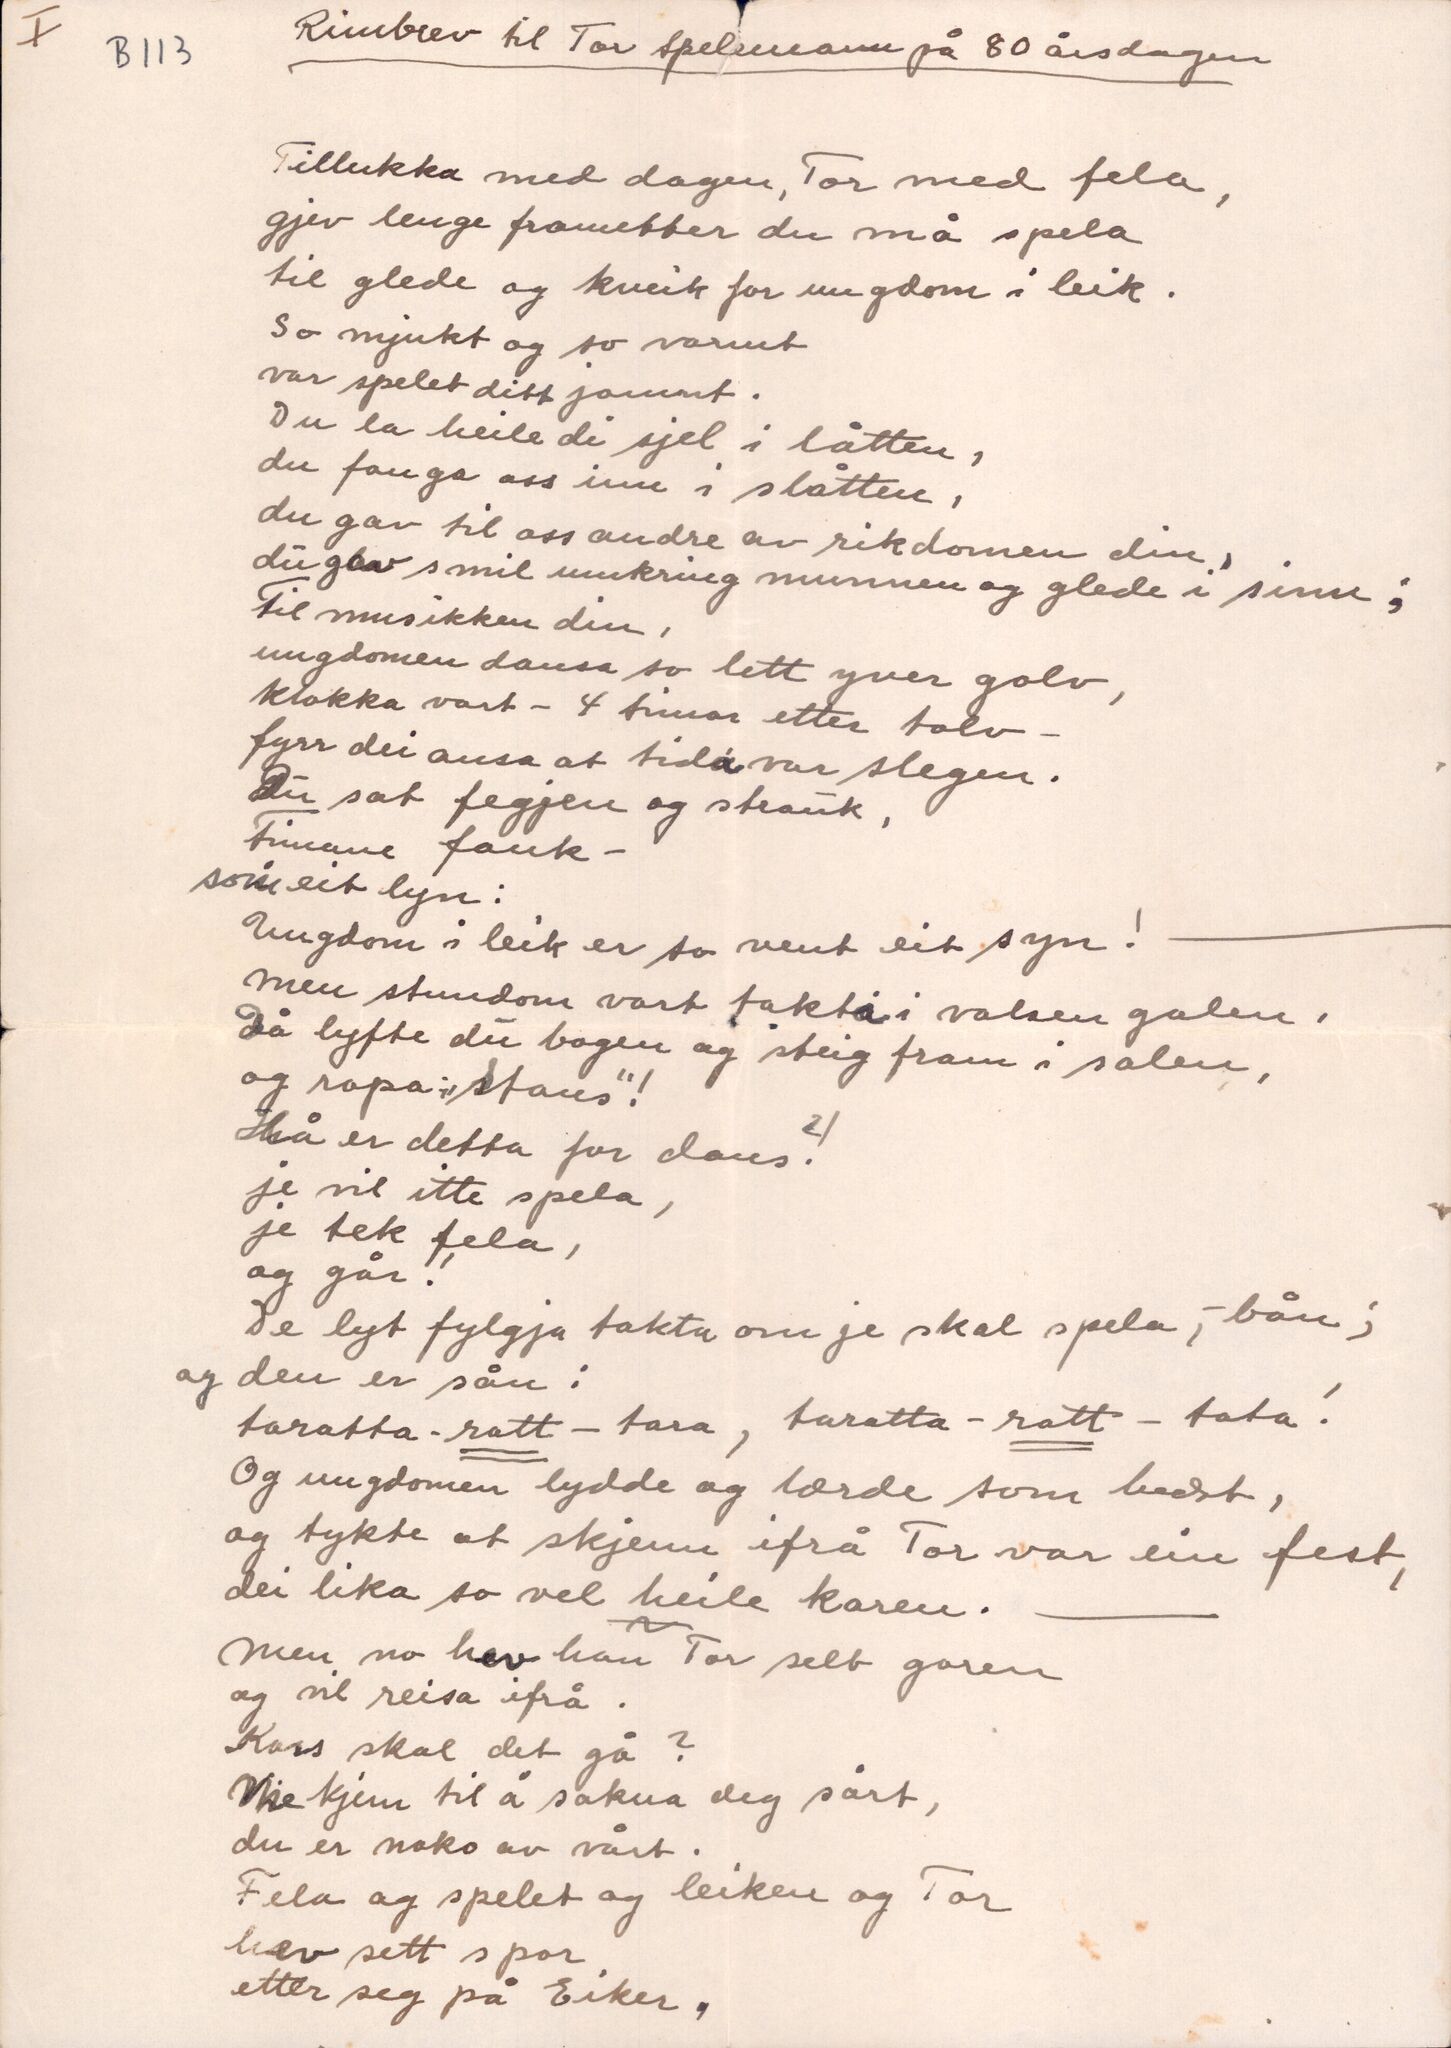 I
B113
Rimbrev til Tor spelemann på 80 årsdagen
Tillukka med dagen, Tor med fela,
gjev lenge frametter du må spela
til glede og kveik for ungdom i leik.
So mjukt og so varmt
var spelet ditt jamnt.
Du la heile di sjel i låtten,
du fanga oss inn i slåtten,
du gav til oss andre av rikdomen din,
du gav smil umkring munnen og glede i sinn;
Til musikken din,
ungdomen dansa so lett yver golv,
klokka vart - 4 timar etter tolv -
fyrr dei ansa at tida var slegen.
Du sat fegjen og strauk,
Timane fauk -
som eit lyn:
Ungdom i leik er so vent eit syn! —
men stundom vart takta i valsen galen,
Då lyfte du bogen og steig fram i salen,
og ropa: "stans"!
Hå er detta for dans?!
je vil itte spela,
je tek fela,
og går!
De lyt fylgja takta om je skal spela, - bån;
og den er sån:
taratta - ratt - tara, taratta - ratt - tata!
Og ungdomen lydde og lærde som best,
og tykte at skjenn ifrå Tor var ein fest,
dei lika so vel heile karen. —
men no hev han Tor selt garen
og vil reisa ifrå.
Kors skal det gå?
Me kjem til å sakna deg sårt,
du er noko av vårt.
Fela og spelet og leiken og Tor
hev sett spor
etter seg på Eiker.